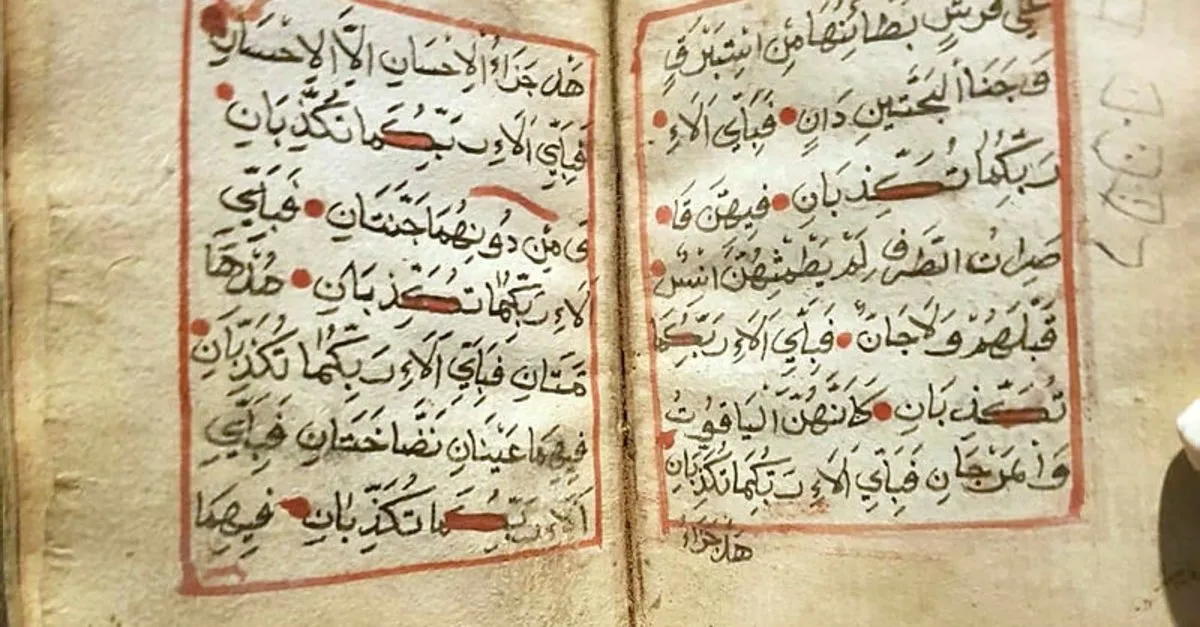 عَلَى فُرُشٍ بَطَائِنُهَا مِنْ اسْتَبْرَقٍ
وَجَنَا الْجَنَّتَيْنِ دَانٍ فَبِأَيِّ آلَاءِ
رَبِّكُمَا تُكَذِّبَانِ فِيهِنَّ قَا
صِرَاتُ الطَّرْفِ لَمْ يَطْمِثْهُنَّ انْسٌ
قَبْلَهُمْ وَلَا جَانٌّ فَبِأَيِّ آلَاءِ رَبِّكُمَا
تُكَذِّبَانِ كَانَّهُنَّ الْيَاقُوتُ
وَالْمَرْجَانِ فَبِأَيِّ آلَاءِ رَبِّكُمَا تُكَذِّبَانِ
هَلْ جَزَاءُ
هَلْ جَزَاءُ الْاِحْسَانِ اِلَّا الْاِحْسَانِ
فَبِأَيِّ آلَاءِ رَبِّكُمَا تُكَذِّبَانِ
وَمِنْ دُونِهِمَا جَنَّتَانِ فَبِأَيِّ
آلَاءِ رَبِّكُمَا تُكَذِّبَانِ مُدْهَا
مَّتَانِ فَبِأَيِّ آلَاءِ رَبِّكُمَا تُكَذِّبَانِ
فِيهِمَا عَيْنَانِ نَضَّاخَتَانِ فَبِأَيِّ
آلَاءِ رَبِّكُمَا تُكَذِّبَانِ فِيهِمَا